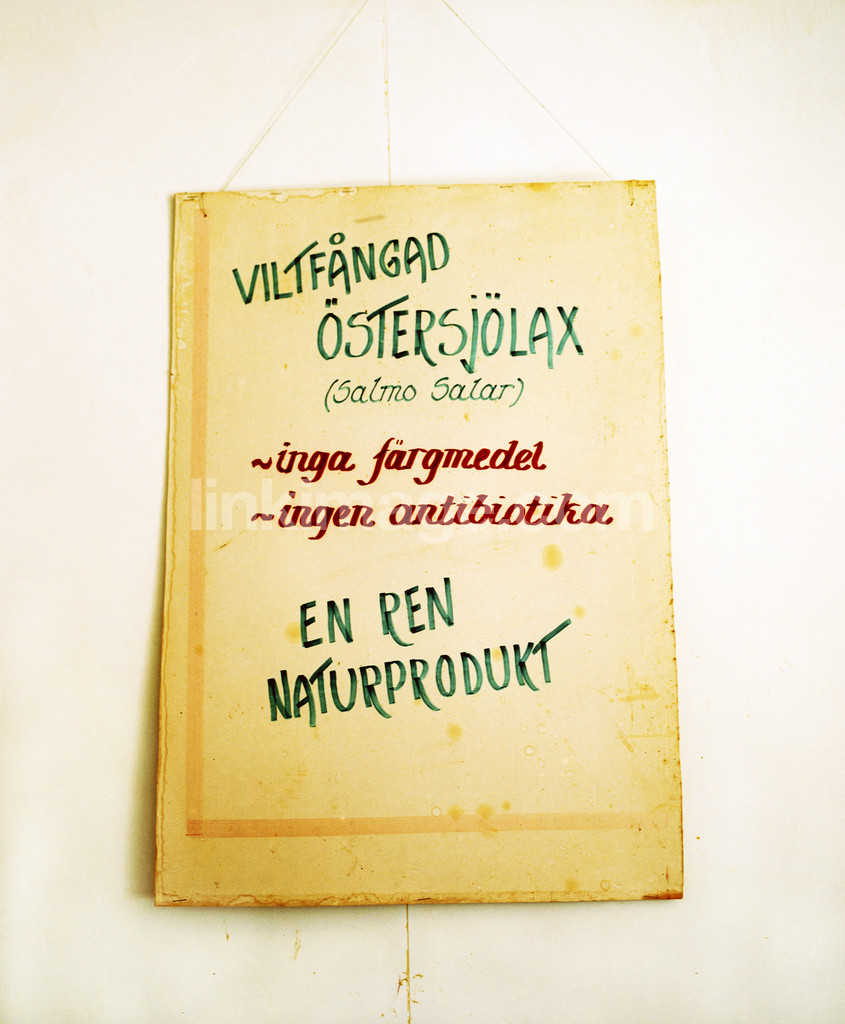 VILTFÅNGAD
ÖSTERSJÖLAX
(Salmo Salar)
~inga färgmedel
~ingen antibiotika
linkimage.com
EN REN
NATURPRODUKT